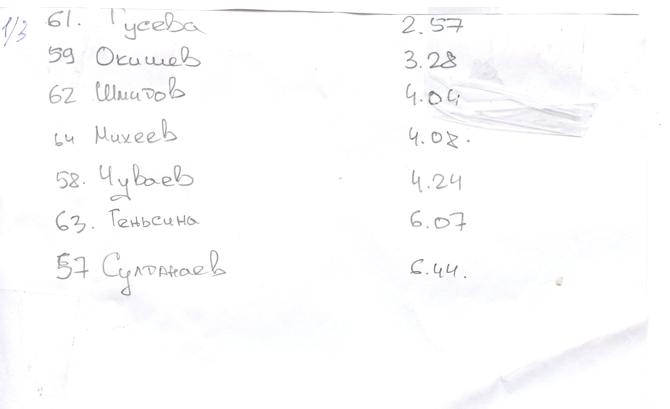 1/3
61. Гусева 2.57
59 Окишев 3.28
62 Шмидов 4.04
64 Михеев 4.08.
58. Чуваев 4.24
63. Геньсина 6.07
57 Султанаев 6.44.